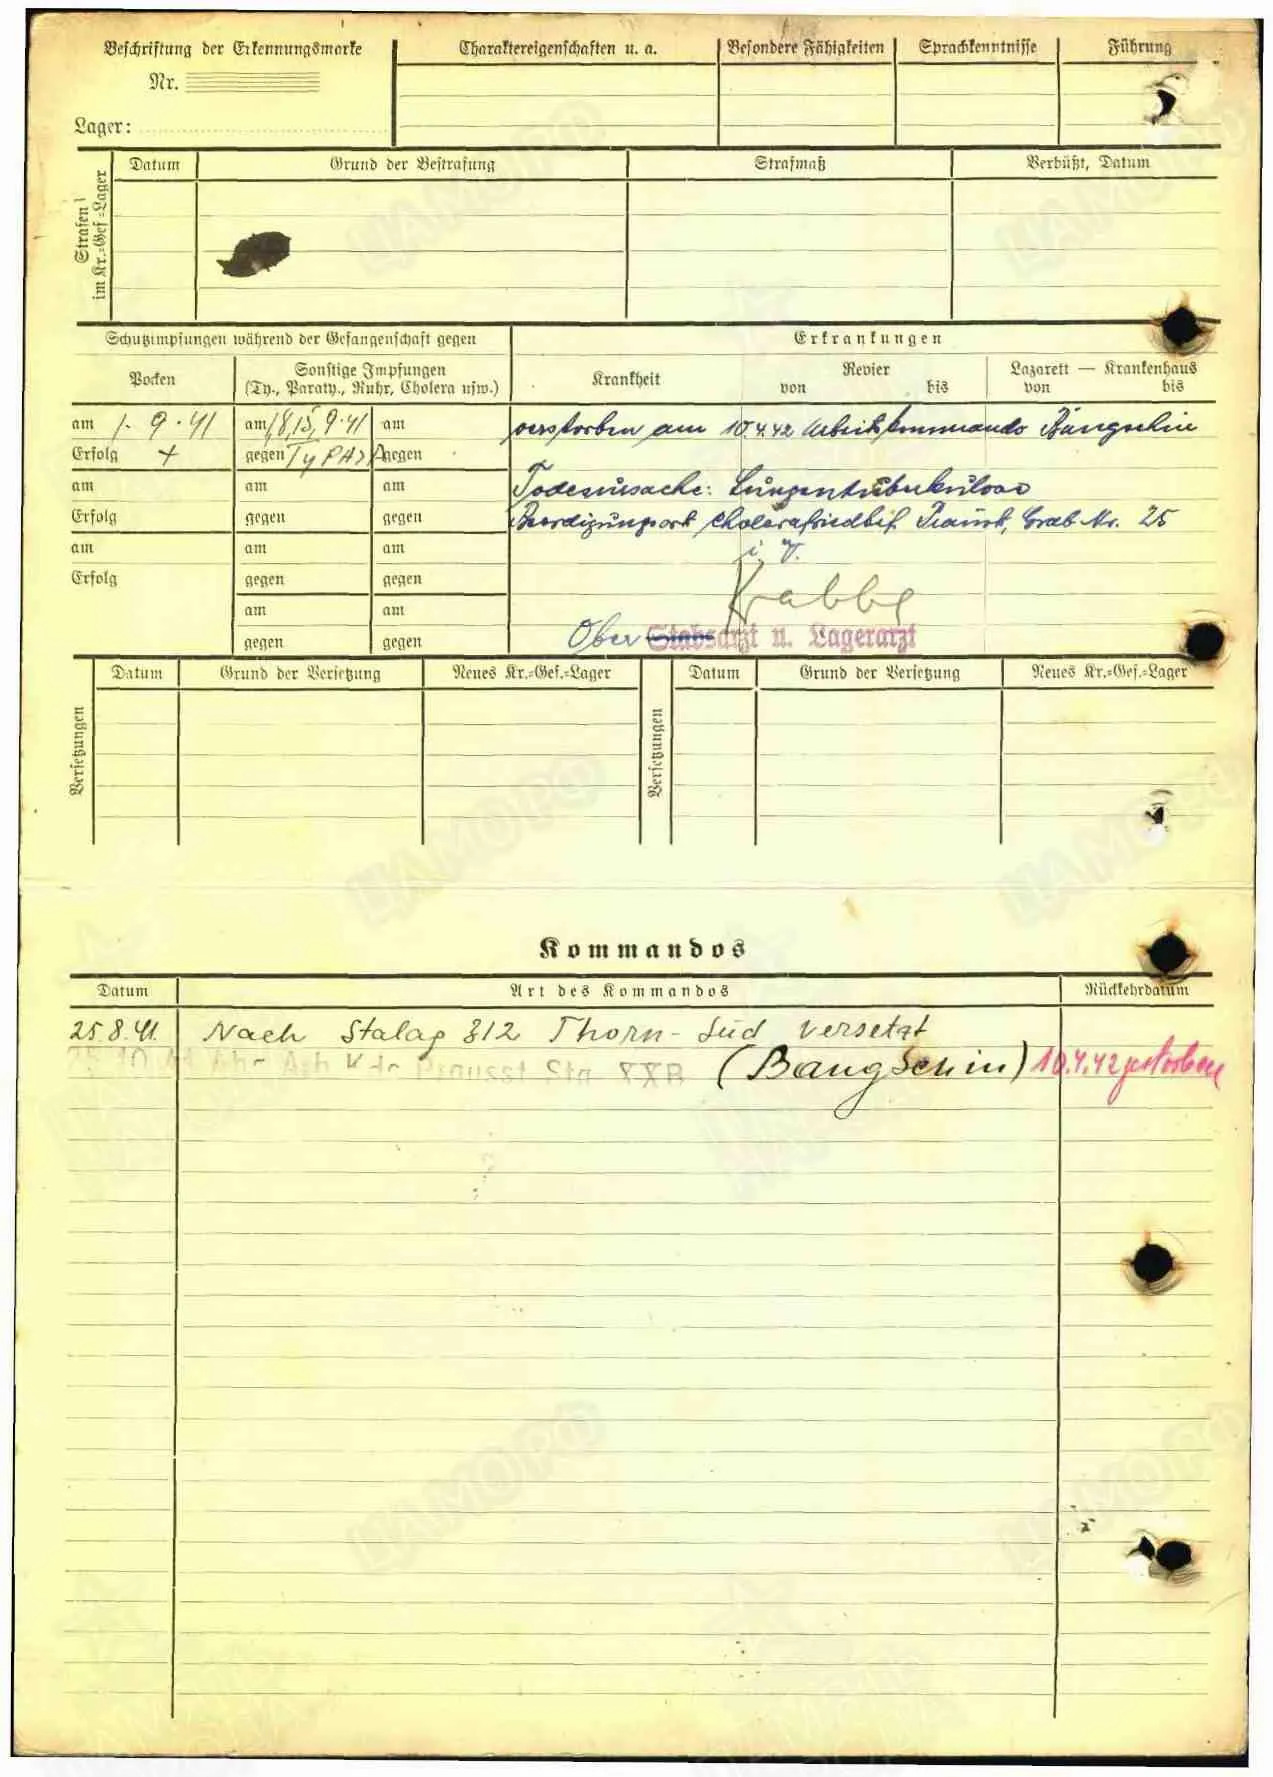 Beschriftung der Erkennungsmarke
Nr.
Lager:
Charaktereigenschaften u. a.
Besondere Fähigkeiten
Sprachkenntnisse
Führung
Strafen im Kr.-Gef.-Lager
Datum
Grund der Bestrafung
Strafmaß
Verbüßt, Datum
Schutzimpfungen während der Gefangenschaft gegen
Erkrankungen
Pocken
Sonstige Impfungen
(Ty., Paraty., Ruhr, Cholera usw.)
Krankheit
Revier
von bis
Lazarett — Krankenhaus
von bis
am 1.9.41 am 1,8,15,9.41 am
Erfolg + gegen Ty PA gegen
am am am
Erfolg gegen gegen
am am am
Erfolg gegen gegen
am am
gegen gegen
verstorben am 10.4.42 Arbeitskommando Bangschin
Todesursache: Lungentuberkulose
Beerdigungsort Cholerafriedhof Praust, Grab Nr. 25
i. V.
Krabbe
Ober Stabsarzt u. Lagerarzt
Versetzungen
Datum
Grund der Versetzung
Neues Kr.-Gef.-Lager
Versetzungen
Datum
Grund der Versetzung
Neues Kr.-Gef.-Lager
Kommandos
Datum
Art des Kommandos
Rückkehrdatum
25.8.41. Nach Stalag 312 Thorn-Süd versetzt
25.10.41 Arb. Kdo Praust Stg XXB (Bangschin) 10.4.42 gestorben
ЦАМО РФ